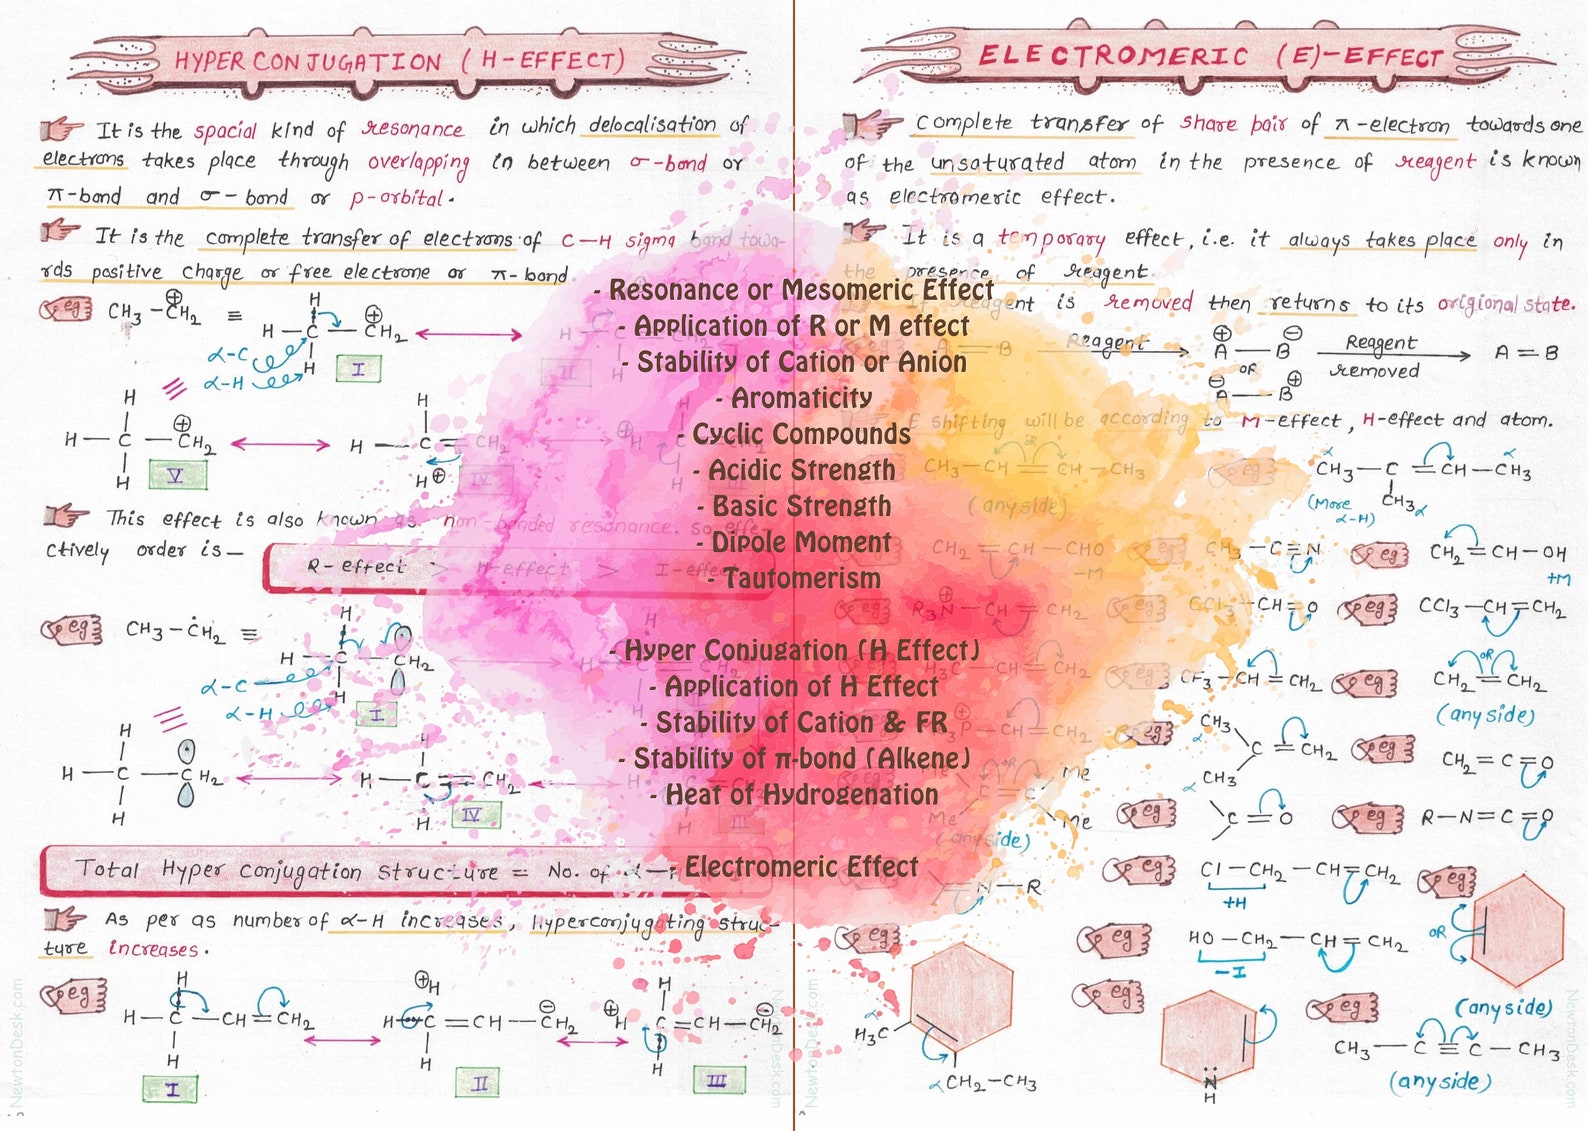 HYPER CONJUGATION (H-EFFECT)
It is the spacial kind of resonance in which delocalisation of
electrons takes place through overlapping in between σ-bond or
π-bond and σ-bond or p-orbital.
It is the complete transfer of electrons of C-H sigma bond towa-
rds positive charge or free electrone or π-bond.
eg CH3-CH2 ≡
H
H-C-CH2
H
α-C
α-H
I
H
H-C-CH2
H
V
H
H-C=CH2
H⊕
IV
This effect is also known as non-bonded resonance. so effe-
ctively order is—
R-effect > H-effect > I-effect
eg CH3-CH2 ≡
H
H-C-CH2
H
α-C
α-H
I
H
H-C-CH2
H
H-C=CH2
H
IV
III
Total Hyper conjugation structure = No. of α-
As per as number of α-H increases, Hyperconjugating struc-
ture increases.
eg
H
H-C-CH=CH2
H
I
⊕H
H C=CH-CH2
H
II
H
⊕H C=CH-CH2
H
III
- Resonance or Mesomeric Effect
- Application of R or M effect
- Stability of Cation or Anion
- Aromaticity
- Cyclic Compounds
- Acidic Strength
- Basic Strength
- Dipole Moment
- Tautomerism
- Hyper Conjugation (H Effect)
- Application of H Effect
- Stability of Cation & FR
- Stability of π-bond (Alkene)
- Heat of Hydrogenation
- Electromeric Effect
ELECTROMERIC (E)-EFFECT
Complete transfer of share pair of π-electron towards one
of the unsaturated atom in the presence of reagent is known
as electromeric effect.
It is a temporary effect, i.e. it always takes place only in
the presence of reagent.
reagent is removed then returns to its origional state.
A=B Reagent A-B Reagent removed A=B
OR
A-B
E shifting will be according to M-effect, H-effect and atom.
CH3-CH=CH-CH3
(any side)
eg CH3-C=CH-CH3
CH3
(More α-H)
CH2=CH-CHO
-M
eg CH3-C≡N
eg CH2=CH-OH
+M
R3N-CH=CH2
eg CCl3-CH=O
eg CCl3-CH=CH2
H3C-CH=CH2
eg CF3-CH=CH2
eg CH2=CH2
OR
(any side)
eg CH3
C=CH2
CH3
eg CH2=C=O
Me Me
C=C
Me Me
(any side)
eg C=O
eg R-N=C=O
N-R
eg Cl-CH2-CH=CH2
+H
eg
OR
(any side)
eg
H3C
αCH2-CH3
eg HO-CH2-CH=CH2
-I
eg
N
H
eg CH3-C≡C-CH3
(any side)
NewtonDesk.com
NewtonDesk.com
NewtonDesk.com
NewtonDesk.com